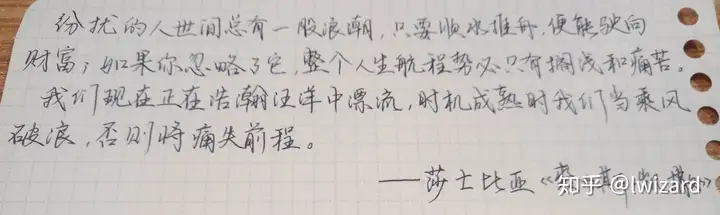 纷扰的人世间总有一股浪潮，只要顺水推舟，便能驶向
财富；如果你忽略了它，整个人生航程势必只有搁浅和痛苦。
我们现在正在浩瀚汪洋中漂流，时机成熟时我们当乘风
破浪，否则将痛失前程。
——莎士比亚《
知乎 @lwizard